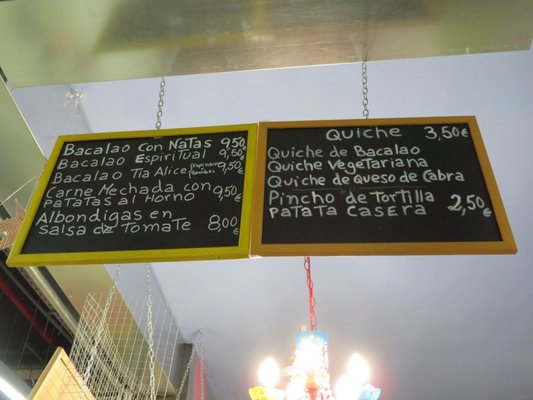 BACALAO CON NATAS 9,50
BACALAO ESPIRITUAL 9,50€
BACALAO TIA ALICE 9,50€
CARNE MECHADA CON
PATATAS AL HORNO 9,50€
ALBONDIGAS EN
SALSA DE TOMATE 8,00€
QUICHE 3,50€
QUICHE DE BACALAO
QUICHE VEGETARIANA
QUICHE DE QUESO DE CABRA
PINCHO DE TORTILLA
PATATA CASERA 2,50€